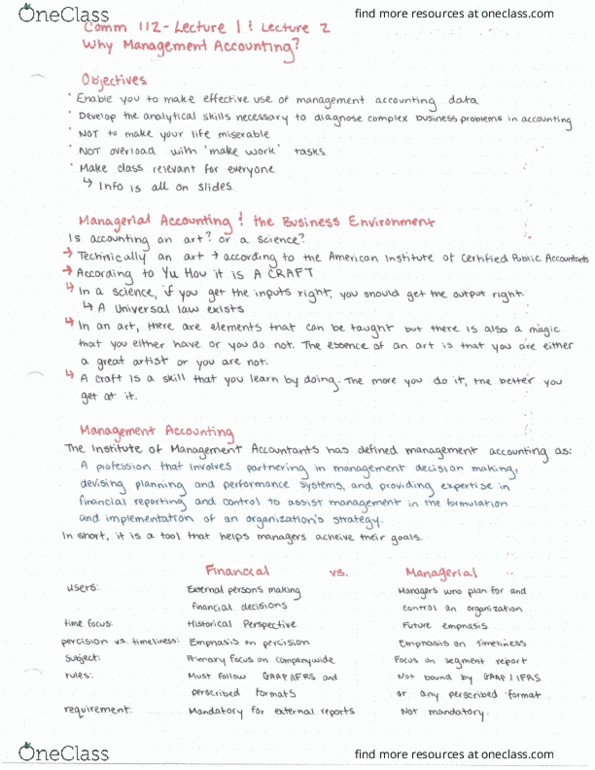 OneClass
find more resources at oneclass.com
Comm 112 - Lecture 1 & Lecture 2
Why Management Accounting?
Objectives
· Enable you to make effective use of management accounting data
· Develop the analytical skills necessary to diagnose complex business problems in accounting
· NOT to make your life miserable
· NOT overload with 'make work' tasks.
· Make class relevant for everyone
↳ Info is all on slides.
Managerial Accounting & the Business Environment
Is accounting an art? or a science?
→ Technically an art → according to the American Institute of Certified Public Accountants
→ According to Yu Hou it is A CRAFT
↳ In a science, if you get the inputs right, you should get the output right.
↳ A Universal law exists
↳ In an art, there are elements that can be taught but there is also a magic
that you either have or you do not. The essence of an art is that you are either
a great artist or you are not.
↳ A craft is a skill that you learn by doing. The more you do it, the better you
get at it.
Management Accounting
The Institute of Management Accountants has defined management accounting as:
A profession that involves partnering in management decision making,
devising planning and performance systems, and providing expertise in
financial reporting and control to assist management in the formulation
and implementation of an organization's strategy.
In short, it is a tool that helps managers acheive their goals.
Financial vs. Managerial
users: External persons making Managers who plan for and
financial decisions control an organization
time focus: Historical Perspective Future emphasis
percision vs. timeliness: Emphasis on percision Emphasis on timeliness
subject: Primary Focus on companywide Focus on segment report
rules: Must follow GAAP/IFRS and Not bound by GAAP / IFRS
perscribed formats or any perscribed format
requirement: Mandatory for external reports Not mandatory.
OneClass
find more resources at oneclass.com